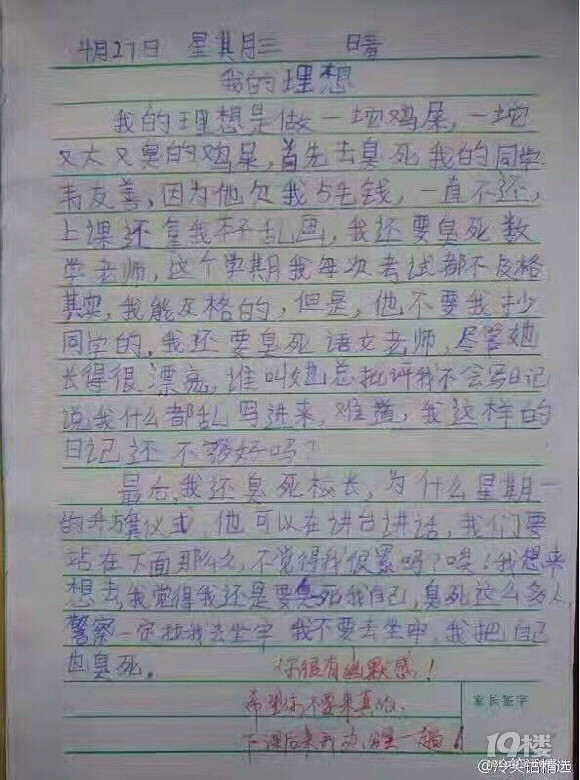 4月27日 星其月三 晴
我的理想
我的理想是做一坨鸡屎,一坨
又大又臭的鸡屎,首先去臭死我的同学
韦友善,因为他欠我5毛钱,一直不还,
上课还拿我本子乱画,我还要臭死数
学老师,这个学期我每次考试都不及格
其实,我能及格的,但是,他不要我抄
同学的,我还要臭死语文老师,尽管她
长得很漂亮,谁叫她总批评我不会写日记
说我什么都乱写进来,难道,我这样的
日记还不够好吗?
最后,我还臭死校长,为什么星期一
的升旗仪式,他可以在讲台讲话,我们要
站在下面那么久,不觉得我很累吗?唉!我想来
想去,我觉得我还是要臭死我自己,臭死这么多人,
警察一定拉我去坐牢 我不要去坐牢,我把自己
也臭死。
你很有幽默感!
希望你不要来真的。
下课后来我办公室一趟!
家长签字
19楼
@冷笑话精选